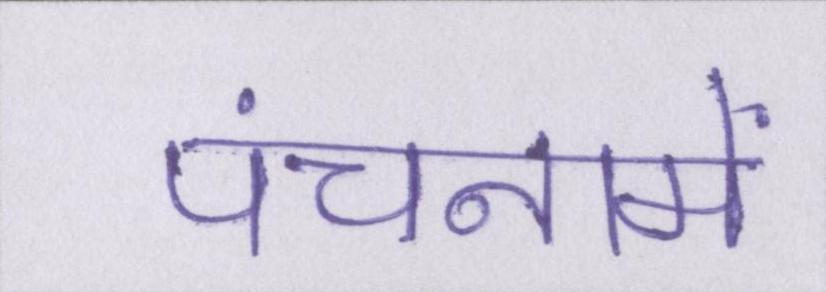 पंचनामें